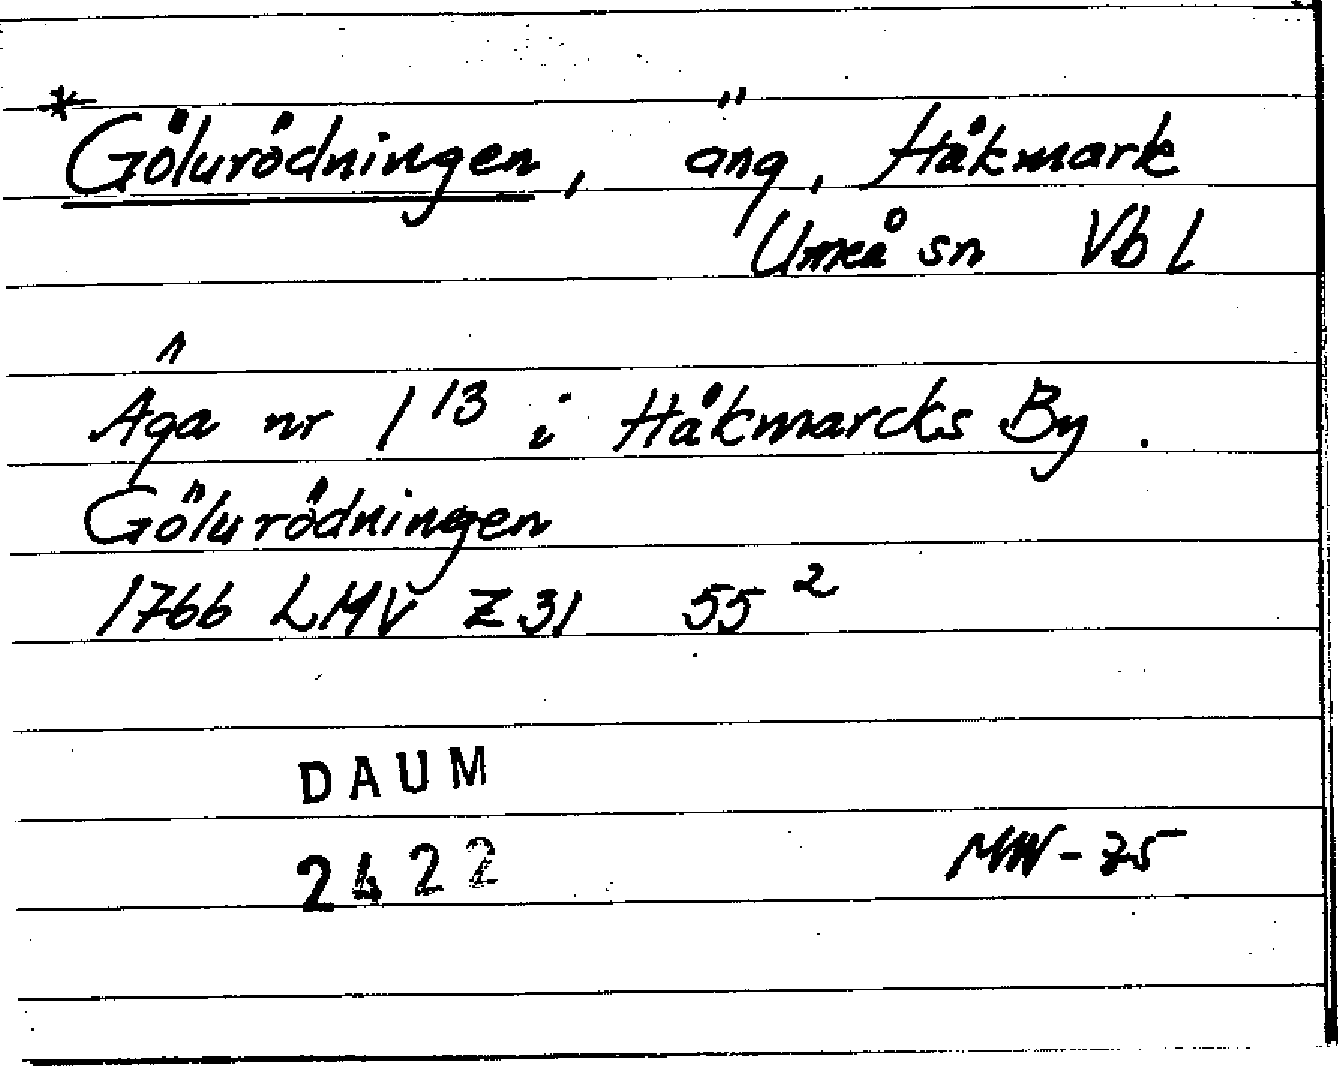 *Gölurödningen, äng, Håkmark
Umeå sn Vb l
Äga nr 1 13 i Håkmarcks By.
Gölurödningen
1766 LMV Z 31 55 2
DAUM
2422
MW-75